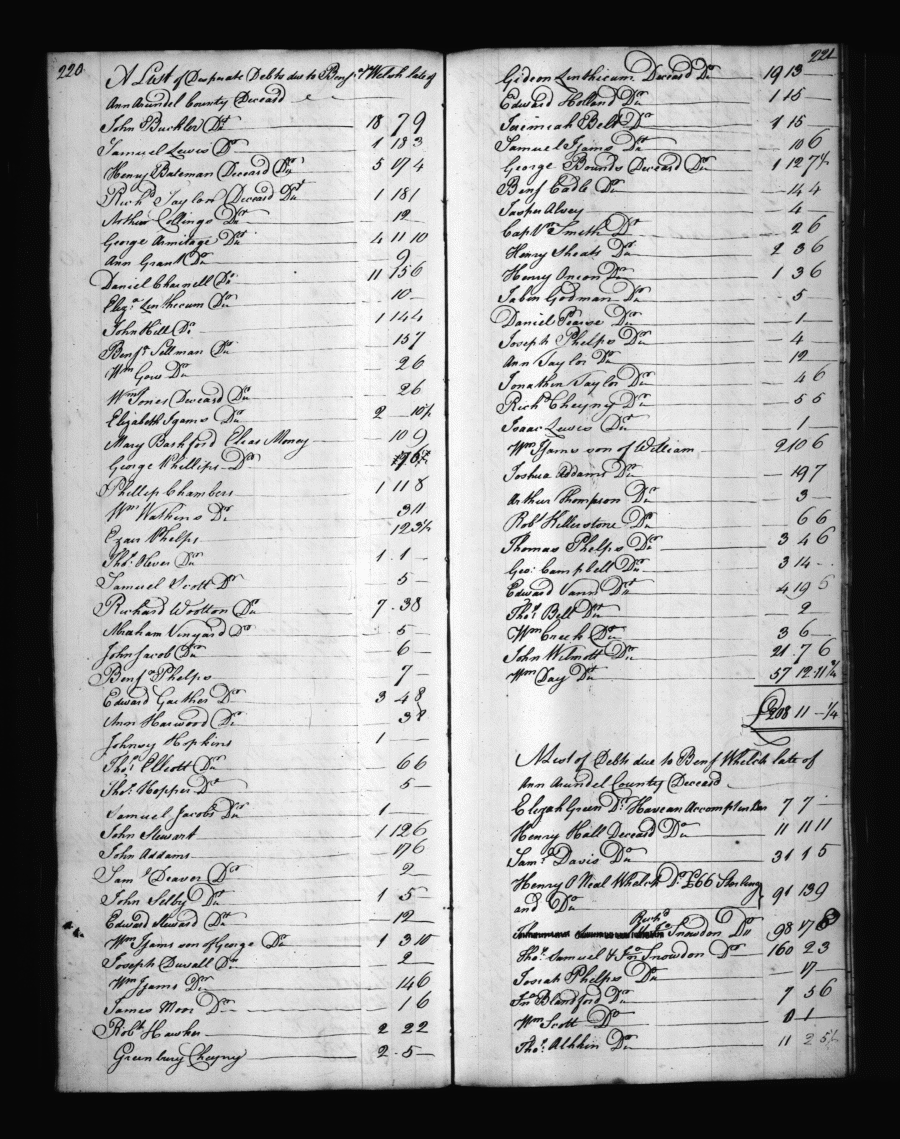 220
A List of Desperate Debts due to Benjn Welsh late of
Ann Arundel County Deceasd
John Buckler Dr 18 7 9
Samuel Lewis Dr 1 18 3
Henry Bateman Deceasd Dr 5 17 4
Richd Taylor Deceasd Dr 1 18 1
Arthur Collings Dr 12
George Armitage Dr 4 11 10
Ann Grant Dr 9
Daniel Charnell Dr 11 15 6
Eliza Linthecum Dr 10
John Hill Dr 1 14 4
Benjn Sellman Dr 15 7
Wm Goes Dr 2 6
Wm Jones Deceasd Dr 2 6
Elizabeth Igams Dr 2
Mary Bashford Elias Money 10 9
George Phillips Dr
Phillip Chambers 1 11 8
Wm Watkins Dr 3 11
Ezar Phelps 12 3½
Thos Never Dr 1 1
Samuel Scott Dr 5
Richard Wootton Dr 7 3 8
Abraham Vinyard Dr 5
John Jacob Dr 6
Benjn Phelps 7
Edward Gaither Dr 3 4 8
Ann Harwood Dr
Johnsy Hopkins 1
Thos Elliott Dr 6 6
Thos Hopper Dr 5
Samuel Jacobs Dr 1
John Stewart 1 12 6
John Addams 17 6
Saml Deaver Dr 2
John Selby Dr 1 5
Edward Steward Dr 12
Wm Ijams son of George Dr 1 3 10
Joseph Duvall Dr 2
Wm Ijams Dr 14 6
James Moor Dr 1 6
Robt Hawker 2 2 2
Greenbury Cheyny 2 5
221
Gideon Linthicum Deceasd Dr 19 13
Edward Holland Dr 1 15
Jeremiah Belt Dr 1 15
Samuel Ijams Dr 10 6
George Bounds Deceasd Dr 1 12
Benj Eadle Dr 14 4
Jasper Alvey 4
Capt Smith Dr 2 6
Henry Sheats Dr 2 3 6
Henry Oneon Dr 1 3 6
Jabin Godman Dr 5
Daniel Pearse Dr 1
Joseph Phelps Dr 4
Ann Taylor Dr 12
Jonathin Taylor Dr 4 6
Richd Cheyny Dr 5 5
Isaac Lewis Dr 1
Wm Ijams son of William 2 10 6
Joshua Addams Dr 19 7
Arthur Thompson Dr 3
Robt Killerstone Dr 6 6
Thomas Phelps Dr 3 4 6
Geo. Campbell Dr 3 14
Edward Vann Dr 4 19 6
Thos Belt Dr 2
Wm Creek Dr 3 6
John Wilmott Dr 21 7 6
Wm Day Dr 57 12 11¾
£208 11 - ¼
A List of Debts due to Benj Whelch late of
Ann Arundel County Deceasd
Elijah Green Dr Have an Accompt in Bar 7 7
Henry Hall Deceasd Dr 11 11 11
Saml Davis Dr 31 1 5
Henry O Neal Whelch Dr £66 Sterling
and Dr 91 13 9
Richd Snowdon Dr 98 17 8
Thos Samuel & Jno Snowdon Dr 160 2 3
Josiah Phelps Dr 17
Jno Blandford Dr 7 5 6
Wm Scott Dr 0 1
Thos Athkin Dr 11 2 5½